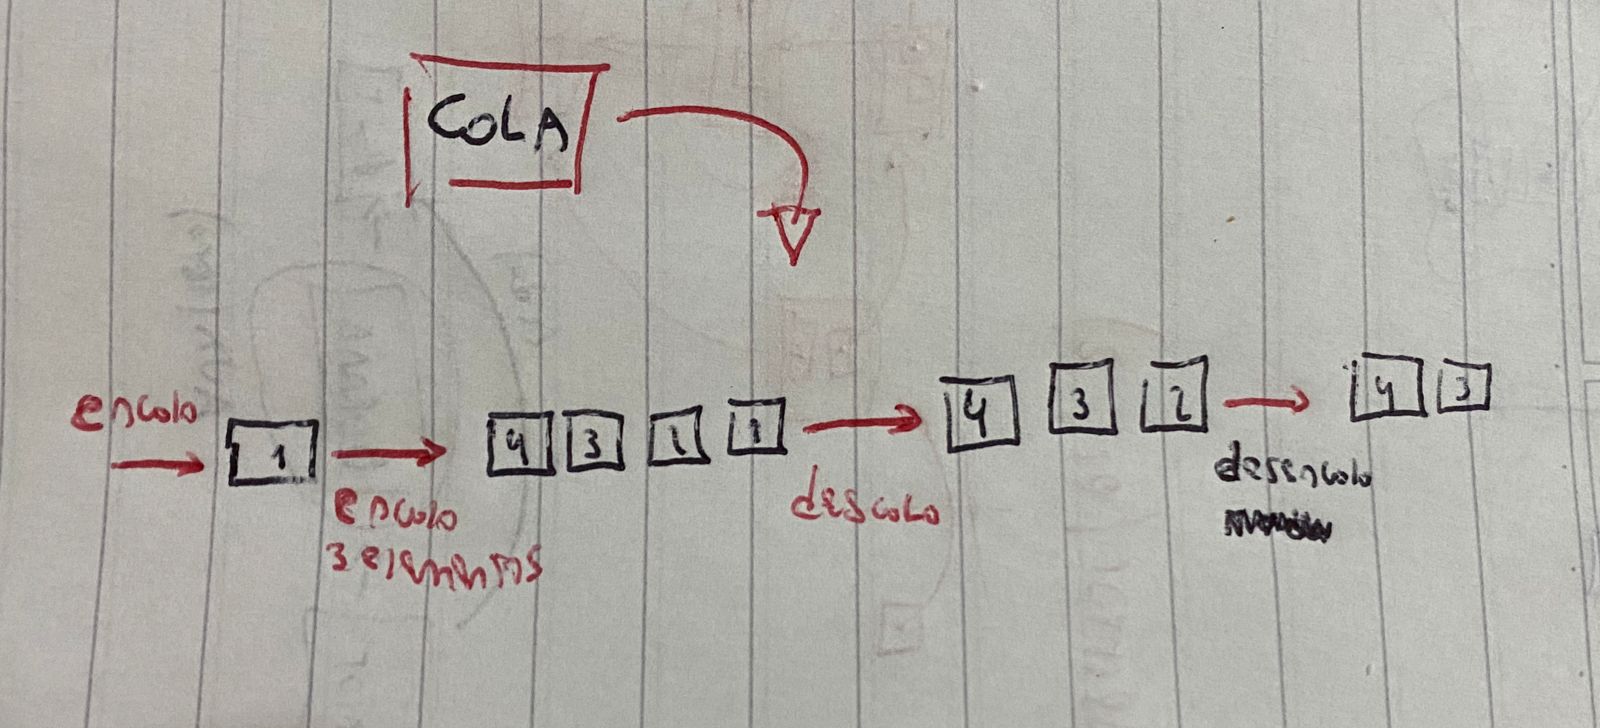 COLA
encolo
1
encolo
3 elementos
4 3 2 1
descolo
4 3 2
desencolo
4 3